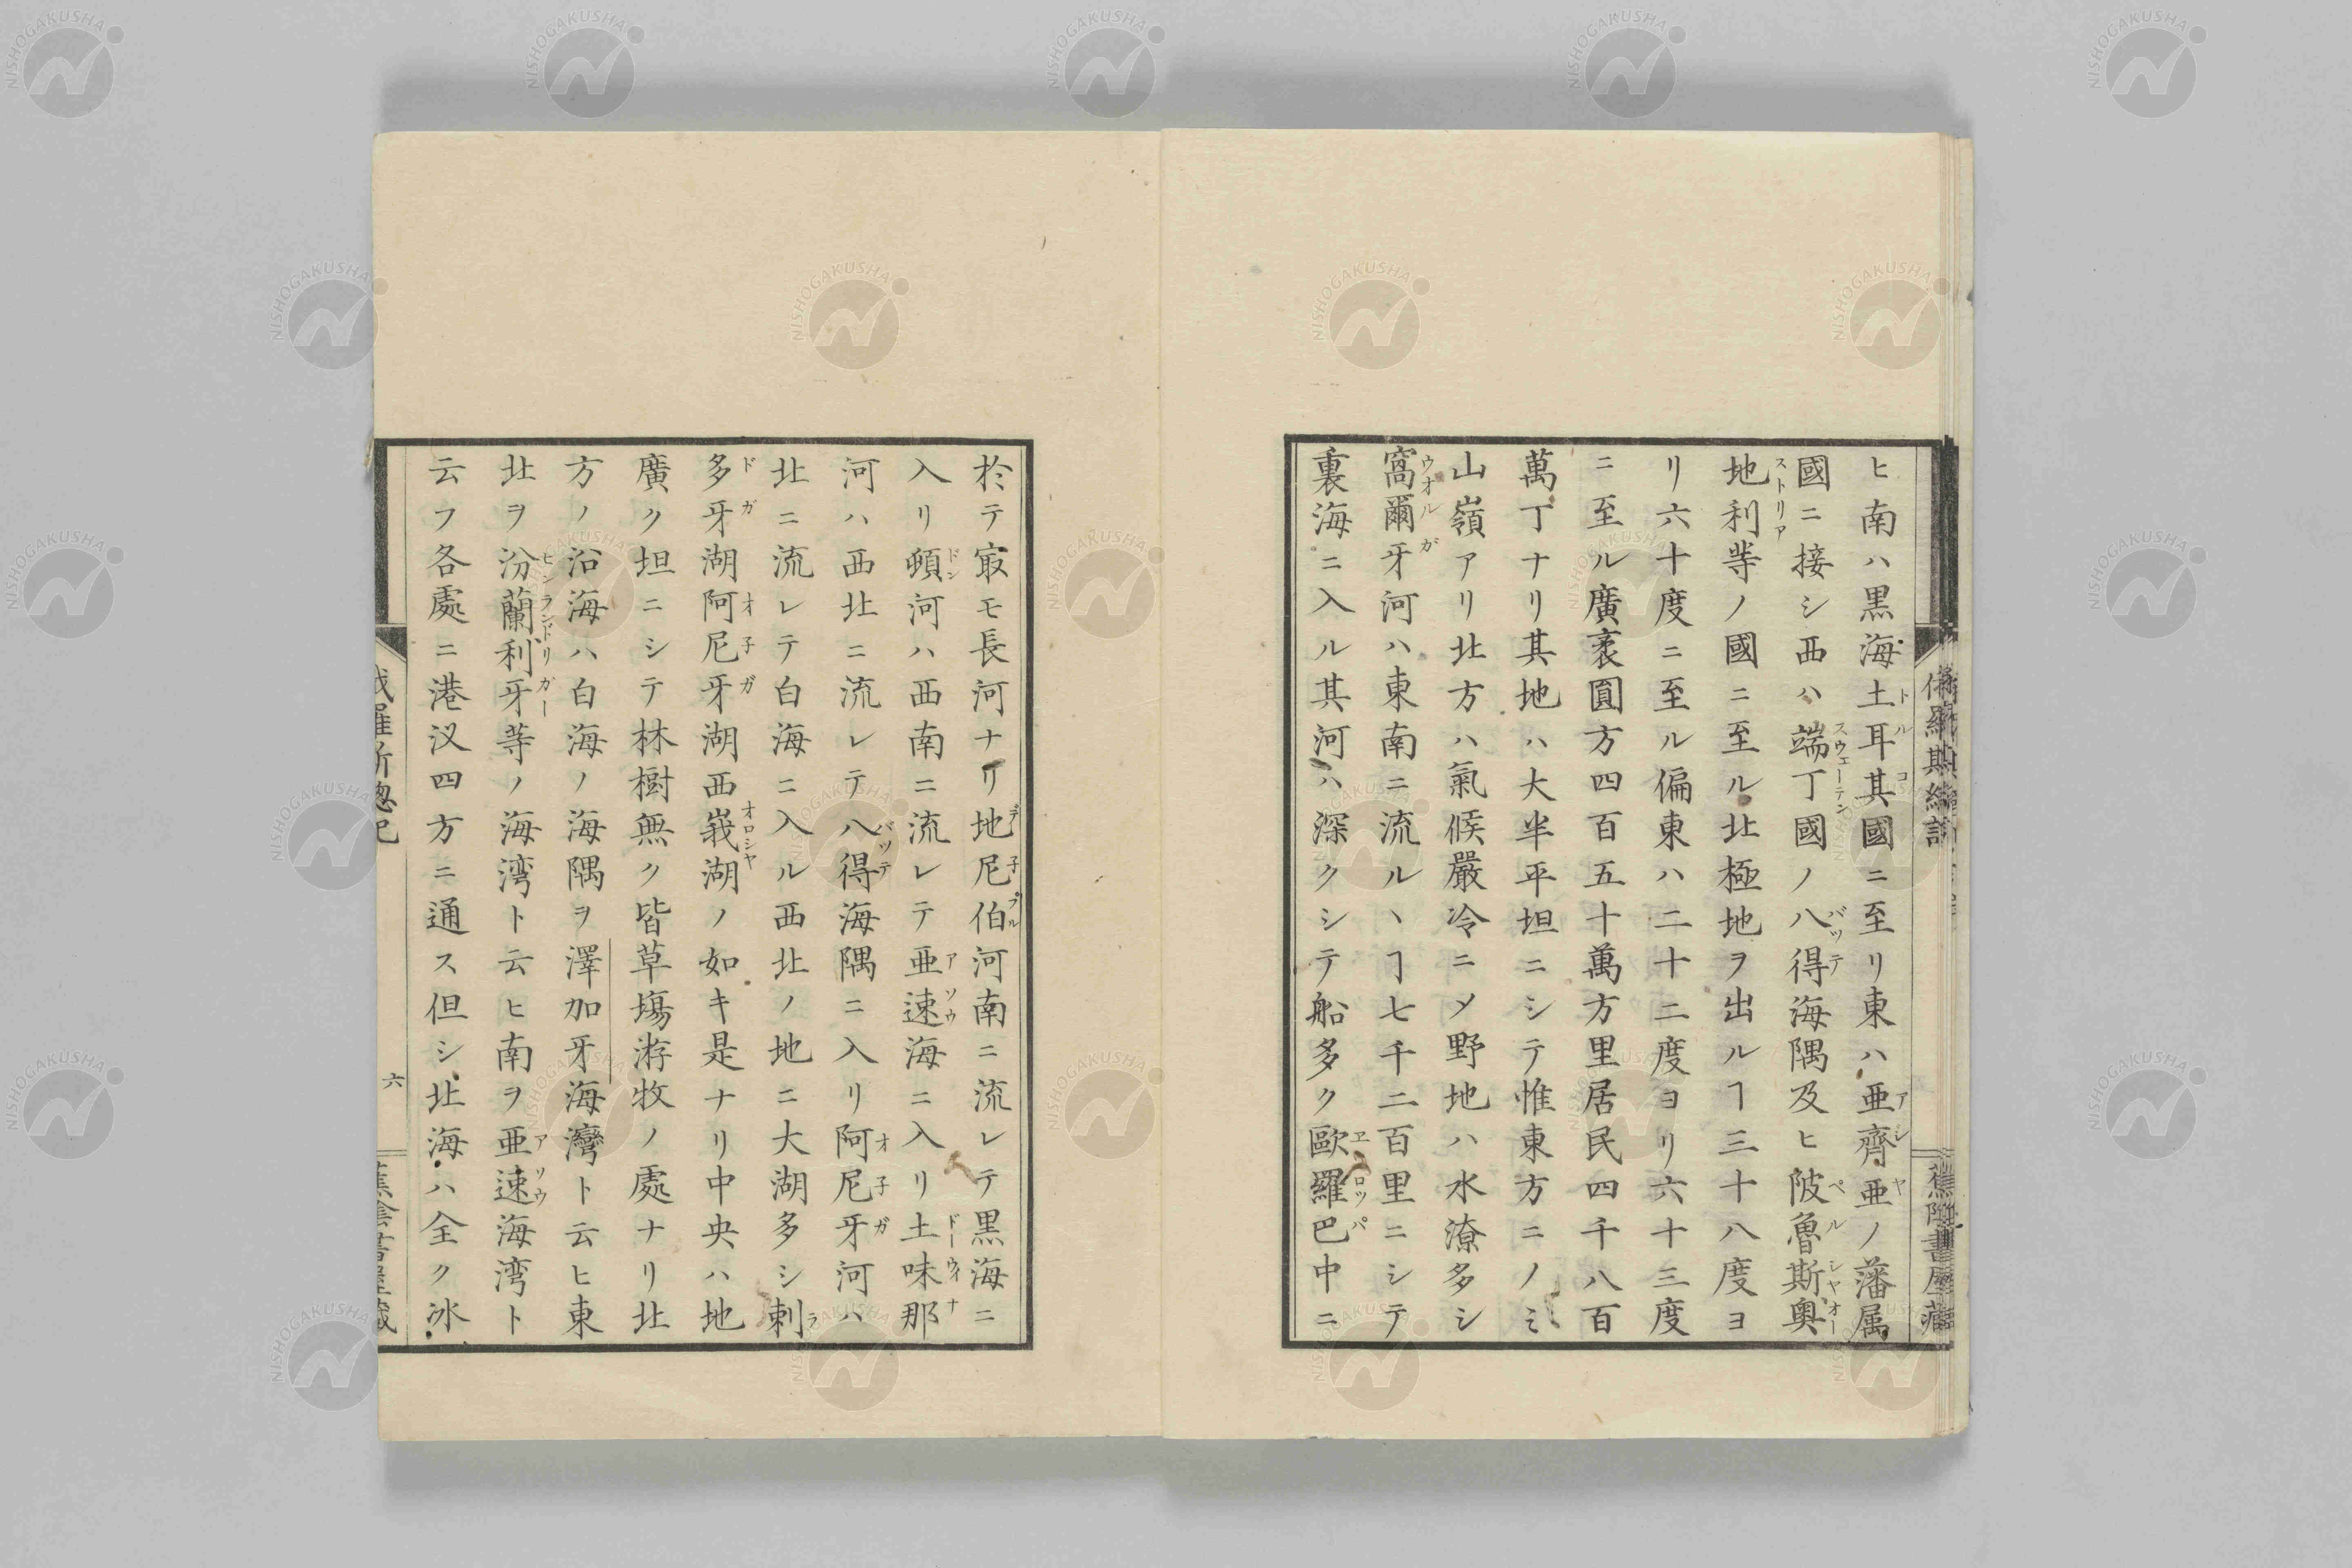 ヒ南ハ黒海土耳其國ニ至リ東ハ亜齊亜ノ藩属
國ニ接シ西ハ端丁國ノ八得海隅及ヒ陂魯斯奧
地利等ノ國ニ至ル北極地ヲ出ルヿ三十八度ヨ
リ六十度ニ至ル偏東ハ二十二度ヨリ六十三度
ニ至ル廣袤圓方四百五十萬方里居民四千八百
萬丁ナリ其地ハ大半平坦ニシテ惟東方ニノミ
山嶺アリ北方ハ氣候嚴冷ニメ野地ハ水潦多シ
窩爾牙河ハ東南ニ流ルヽヿ七千二百里ニシテ
裏海ニ入ル其河ハ深クシテ船多ク歐羅巴中ニ
於テ㝡モ長河ナリ地尼伯河南ニ流レテ黒海ニ
入リ頓河ハ西南ニ流レテ亜速海ニ入リ土味那
河ハ西北ニ流レテ八得海隅ニ入リ阿尼牙河ハ
北ニ流レテ白海ニ入ル西北ノ地ニ大湖多シ剌
多牙湖阿尼牙湖西峩湖ノ如キ是ナリ中央ハ地
廣ク坦ニシテ林樹無ク皆草塲游牧ノ處ナリ北
方ノ沿海ハ白海ノ海隅ヲ澤加牙海灣ト云ヒ東
北ヲ汾蘭利牙等ノ海湾ト云ヒ南ヲ亜速海湾ト
云フ各處ニ港汊四方ニ通ス但シ北海ハ全ク氷
六